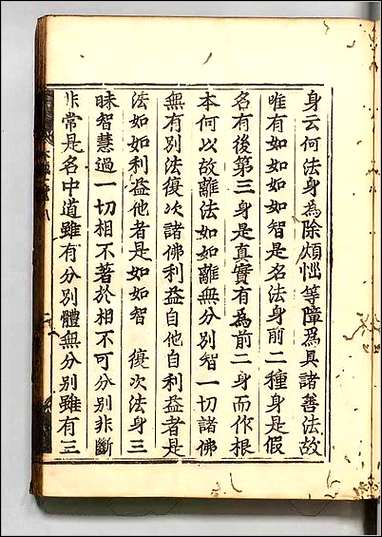 身云何法身為除煩惱等障為具諸善法故
唯有如如如如智是名法身前二種身是假
名有後第三身是真實有為前二身而作根
本何以故離法如如離無分別智一切諸佛
無有別法復次諸佛利益自他自利益者是
法如如利益他者是如如智 復次法身三
昧智慧過一切相不著於相不可分別非斷
非常是名中道雖有分別體無分別雖有三